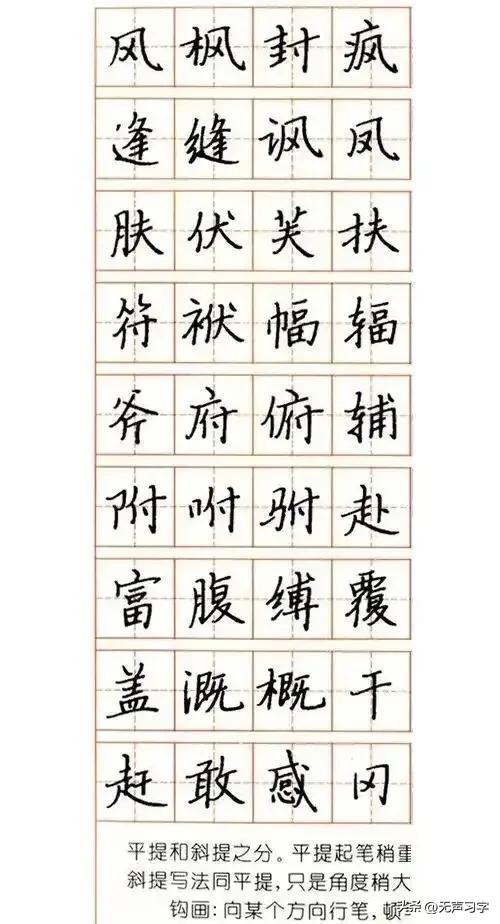 风枫封疯
逢缝讽凤
肤伏芙扶
符袱幅辐
斧府俯辅
附咐驸赴
富腹缚覆
盖溉概干
赶敢感冈
平提和斜提之分。平提起笔稍重
斜提写法同平提,只是角度稍大
钩画:向某个方向行笔,顿
头条 @无声习字